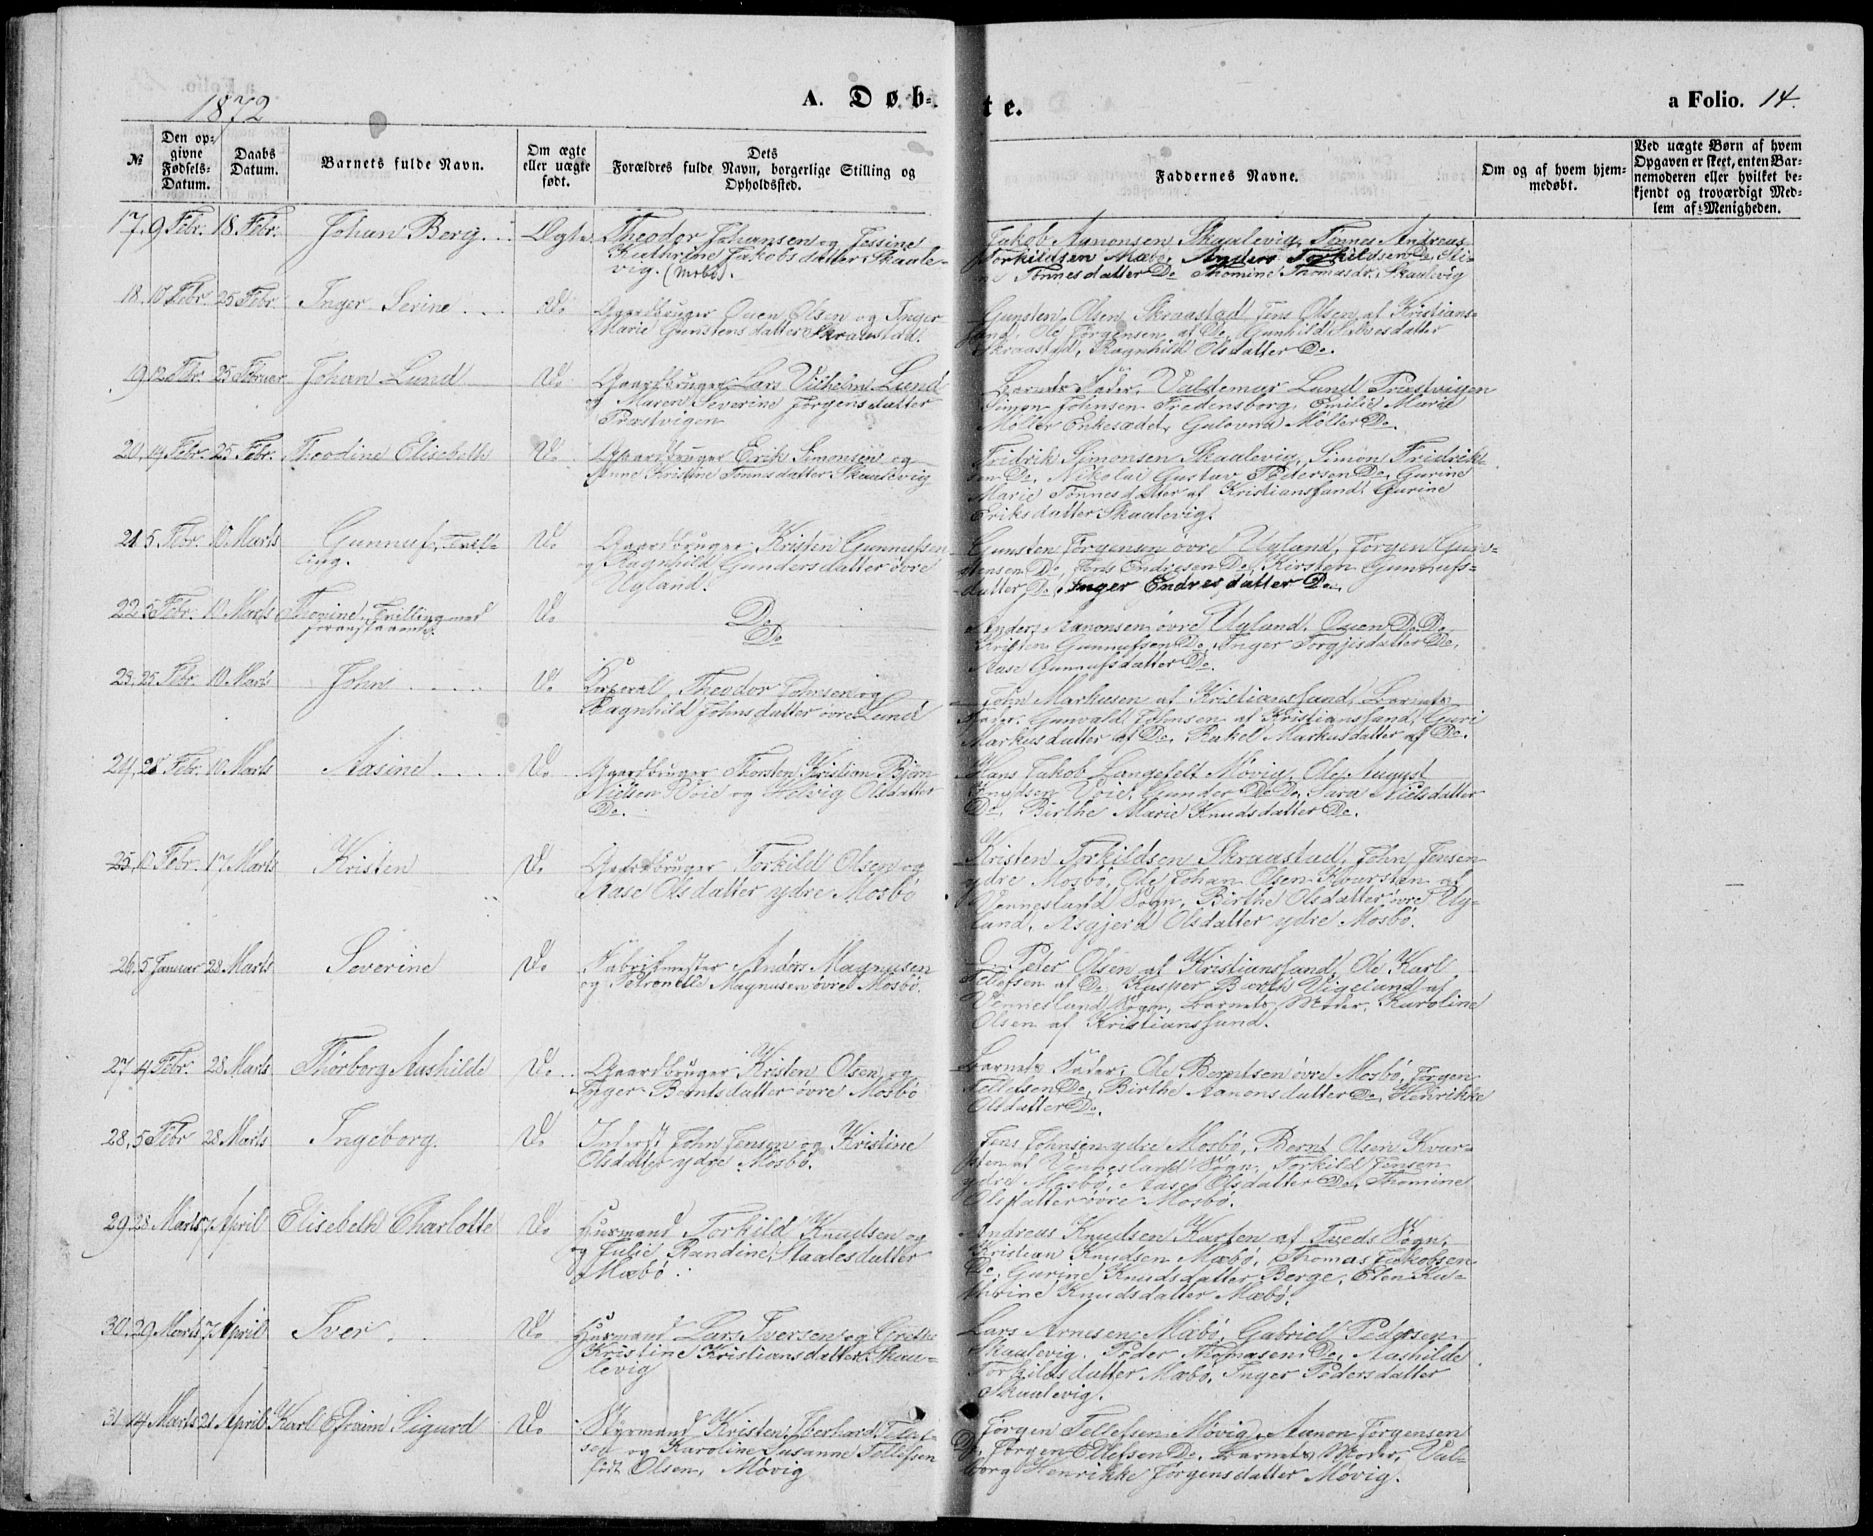 1872
A. Døbte.
a Folio. 14.
№
Den opgivne Fødsels-Datum.
Daabs Datum.
Barnets fulde Navn.
Om ægte eller uægte født.
Dets Forældres fulde Navn, borgerlige Stilling og Opholdssted.
Faddernes Navne.
Om og af hvem hjemmedøbt.
Ved uægte Børn af hvem Opgaven er skeet, enten Barnemoderen eller hvilket bekjendt og troværdigt Medlem af Menigheden.
17. 9 Febr. 18 Febr. Johan Berg. Ægte Theodor Johansen og Jessine
Kathrine Jakobsdatter Skaale-
vig. (Møbø).
Jakob Aanonsen Skaalevig, Tønnes Andreas
Torkildsen Mæbø, Anders Torkildsen Do, Eli-
ne Tønnesdatter Do Thomine Thomasdr. Skaalevig
18. 10 Febr. 25 Febr. Inger Serine Do Gaardbruger Ouen Olsen og Inger
Marie Gunstensdatter Skraastad.
Gunsten Olsen Skraastad, Jens Olsen af Kristians-
sand, Ole Jørgensen af Do, Gunhild
Skraastad, Ragnhild Olsdatter Do.
19. 12 Febr. 25 Februar Johan Lund Do Gaardbruger Lars Vilhelm Lund
og Maren Severine Jørgensdatter
Præstvigen
Barnets Fader, Valdemar Lund Præstvigen
Simon Johnsen Fredensborg, Emilie Marie
Møller Enkesædet, Gulovna Møller Do.
20. 14 Febr. 25 Febr. Theodine Elisebeth Do Gaardbruger Erik Simonsen og
Anne Kristine Tønnesdatter Skaalevig
Fridrik Simonsen Skaalevig, Simon Fridrik-
sen Do, Nikolai Gustav Pedersen Do, Gurine
Marie Tønnesdatter af Kristianssand, Gurine
Eriksdatter Skaalevig.
21. 5 Febr. 10 Marts Gunnuf, Tvil-
ling.
Do Gaardbruger Kristen Gunnufsen
og Ragnhild Gundersdatter øvre
Ugland.
Gunsten Jørgensen øvre Ugland, Jørgen Gun-
stensen Do, Jens Endresen Do, Kirsten Gunnufs-
datter Do, Inger Endresdatter Do.
22. 5 Febr. 10 Marts Thomine, Tvilling med
foranstaaende
Do Do
Do
Anders Aanonsen øvre Ugland, Ouen Do Do
Kristen Gunnufsen Do, Inger Torgjisdatter Do,
Aase Gunnufsdatter Do.
23. 25 Febr. 10 Marts John Do Korporal Theodor Johnsen og
Ragnhild Johnsdatter øvre Lund
John Markusen af Kristianssand, Barnets
Fader, Gunvald Johnsen af Kristianssand, Guri
Markusdatter af Do, Rakel Markusdatter af Do.
24. 21 Febr. 10 Marts Aasine Do Gaardbruger Thorsten Kristian Bjørn
Nielsen Voie og Helvig Olsdatter
Do.
Hans Jakob Langefelt Møvig, Ole August
Knudsen Voie, Gunder Do Do, Sara Nielsdatter
Do, Birthe Marie Knudsdatter Do.
25. 10 Febr. 17 Marts Kristen Do Gaardbruger Torkild Olsen og
Aase Olsdatter ydre Mosbø
Kristen Torkildsen Skraastad, John Jensen
ydre Mosbø, Ole Johan Olsen Kvarsten af
Vennesland Sogn, Birthe Olsdatter øvre Ug-
land, Asgjerd Olsdatter ydre Mosbø.
26. 5 Januar 28 Marts Severine Do Fabrikmester Anders Magnusen
og Petronelle Magnusen øvre Mosbø.
O. Peter Olsen af Kristianssand, Ole Karl
Tellefsen af Do, Kasper Barth Vigeland af
Vennesland Sogn, Barnets Moder, Karoline
Olsen af Kristianssand.
27. 4 Febr. 28 Marts Thorborg Aashilde Do Gaardbruger Kristen Olsen og
Inger Berntsdatter øvre Mosbø
Barnets Fader, Ole Berntsen øvre Mosbø, Jørgen
Tellefsen Do, Birthe Aanonsdatter Do, Henrikke
Olsdatter Do.
28. 5 Febr 28 Marts Ingeborg. Do Inderst John Jensen og Kristine
Olsdatter ydre Mosbø.
Jens Johnsen ydre Mosbø, Bernt Olsen Kvar-
sten af Vennesland Sogn, Torkild Jensen
ydre Mosbø, Aase Olsdatter Do, Thomine
Olsdatter øvre Mosbø.
29. 28 Marts 7 April Elisebeth Charlotte Do Husmand Torkild Knudsen og
og Julie Randine Staalesdatter
Mæbø.
Andreas Knudsen Karten af Tveds Sogn,
Kristian Knudsen Mæbø, Thomas Jakobsen
Do, Gurine Knudsdatter Berge, Elen Ka-
thrine Knudsdatter Mæbø.
30. 29 Marts 7 April Iver Do Husmand Lars Iversen og Grethe
Kristine Kristiansdatter Skaa-
levig
Lars Arnesen Mæbø, Gabriel Pedersen
Skaalevig, Peder Thomasen Do, Aashilde
Torkildsdatter Mæbø, Inger Pedersdatter
Skaalevig.
31. 14 Marts 21 April Karl Efraim Sigurd Do Styrmand Kristen Eberhard Tellef-
sen og Karoline Susanne Tellefsen
født Olsen, Møvig
Jørgen Tellefsen Møvig, Aanon Jørgensen
Do, Jørgen Ellefsen Do, Barnets Moder, Val-
borg Henrikke Jørgensdatter Møvig.